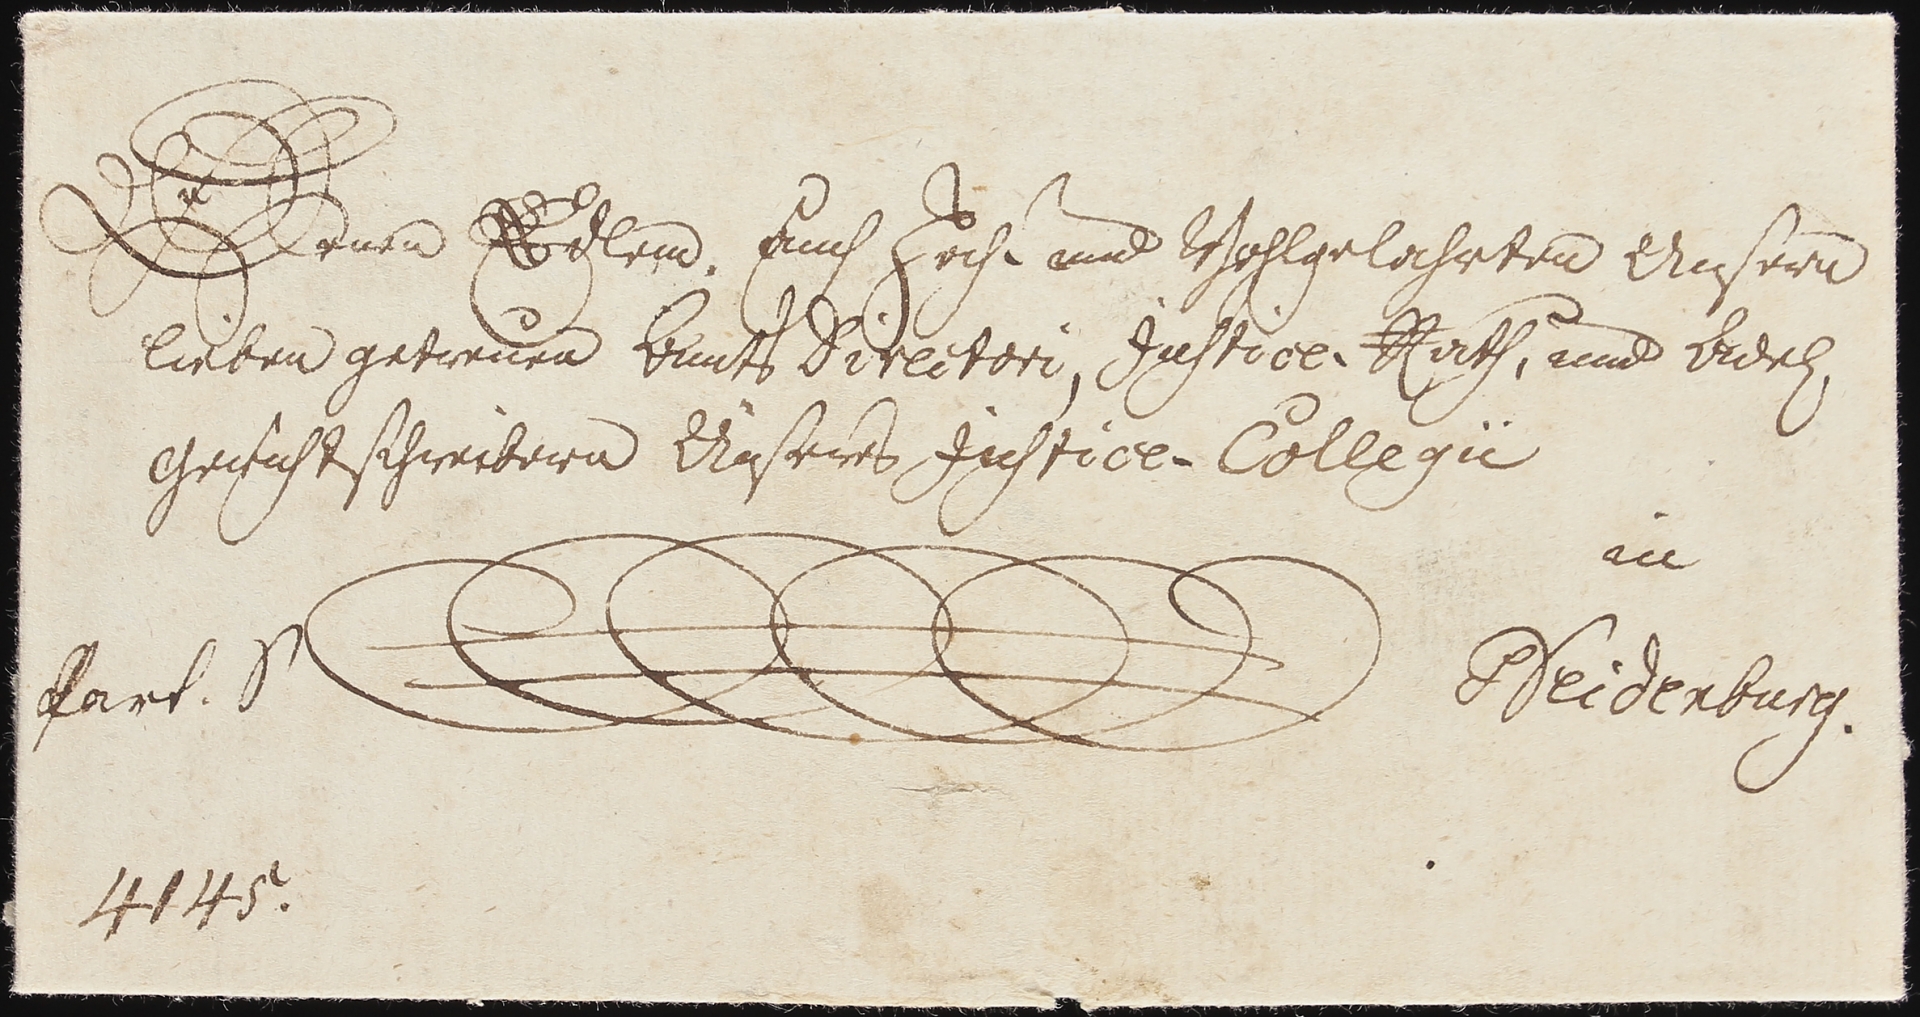 Denen Edlen, auch Hoch- und Wohlgelahrten Unsern
lieben getreuen Amts Directori, Justice-Rath, und Adel,
Gerichtschreibern Unseres Justice-Collegii
in
Neidenburg.
Part. S
4145.